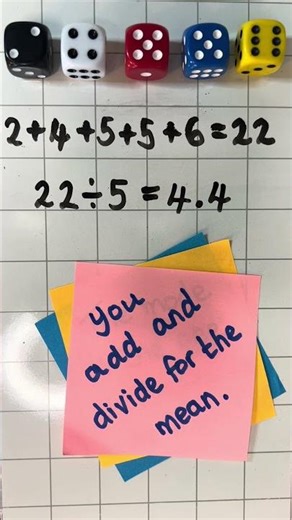 2+4+5+5+6=22
22÷5=4.4
you
add and
divide for the
mean.